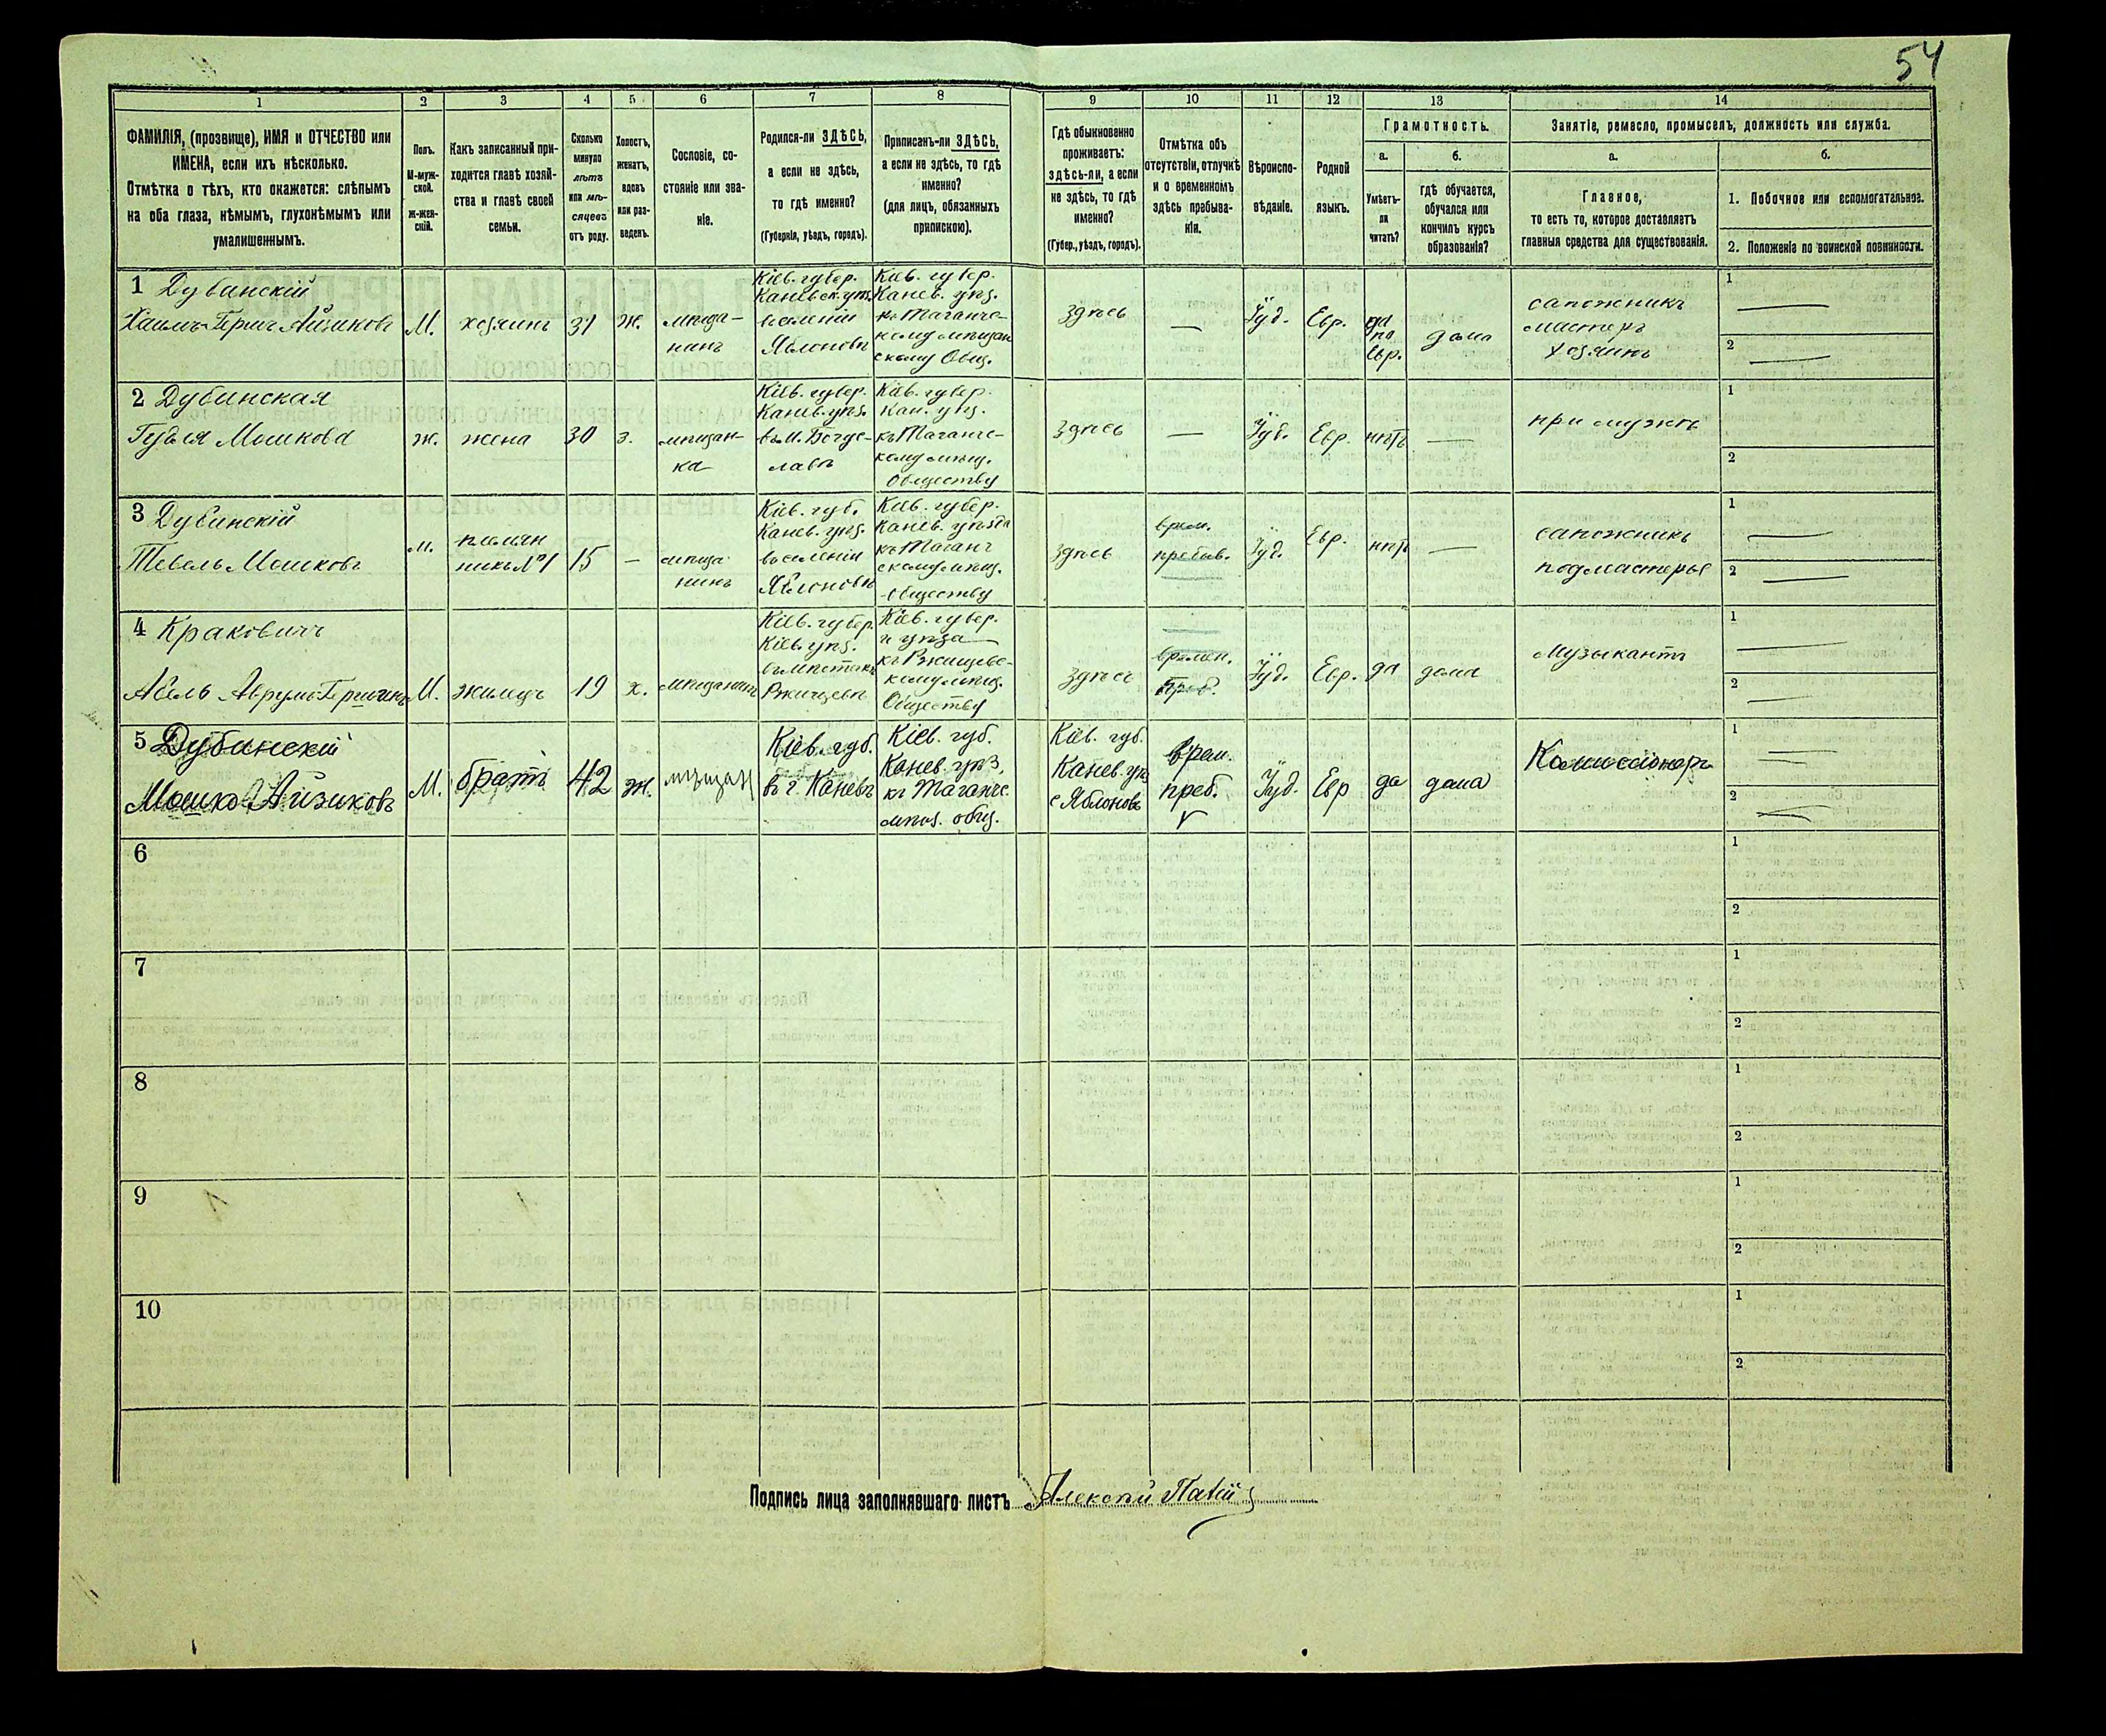 54
1 2 3 4 5 6 7 8 9 10 11 12 13 14
ФАМИЛІЯ, (прозвище), ИМЯ и ОТЧЕСТВО или
ИМЕНА, если ихъ нѣсколько.
Отмѣтка о тѣхъ, кто окажется: слѣпымъ
на оба глаза, нѣмымъ, глухонѣмымъ или
умалишеннымъ.
Полъ.
М-муж-
ской.
ж-жен-
скій.
Какъ записанный при-
ходится главѣ хозяй-
ства и главѣ своей
семьи.
Сколько
минуло
лѣтъ
или мѣ-
сяцевъ
отъ роду.
Холостъ,
женатъ,
вдовъ
или раз-
веденъ.
Сословіе, со-
стояніе или зва-
ніе.
Родился-ли ЗДѢСЬ,
а если не здѣсь,
то гдѣ именно?
(Губернія, уѣздъ, городъ).
Приписанъ-ли ЗДѢСЬ,
а если не здѣсь, то гдѣ
именно?
(для лицъ, обязанныхъ
припискою).
Гдѣ обыкновенно
проживаетъ:
здѣсь-ли, а если
не здѣсь, то гдѣ
именно?
(Губер., уѣздъ, городъ).
Отмѣтка объ
отсутствіи, отлучкѣ
и о временномъ
здѣсь пребыва-
ніи.
Вѣроиспо-
вѣданіе.
Родной
языкъ.
Грамотность.
а. б.
Умѣетъ-
ли
читать?
гдѣ обучается,
обучался или
кончилъ курсъ
образованія?
Занятіе, ремесло, промыселъ, должность или служба.
а. б.
Главное,
то есть то, которое доставляетъ
главныя средства для существованія.
1. Побочное или вспомогательное.
2. Положеніе по воинской повинности.
1 Дубинскій
Хаимъ-Гершъ Айзиковъ
М.
хозяинъ
31
ж.
мѣща-
нинъ
Кіев. губер.
Каневск. уѣз.
въ селеніи
Яблоновѣ
Кіев. губер.
Канев. уѣз.
къ Таганче-
кому мѣщан
скому Общ.
здѣсь
—
Іуд.
Евр.
да
по
Евр.
дома
сапожникъ
мастеръ
хозяинъ
1 —
2 —
2 Дубинская
Гудля Мошкова
ж.
жена
30
з.
мѣщан-
ка
Кіев. губер.
Канев. уѣз.
въ м. Богус-
лавѣ
Кіев. губер.
Кан. уѣз.
къ Таганче-
кому мѣщ.
Обществу
здѣсь
—
Іуд.
Евр.
нѣтъ
—
при мужѣ
1
2
3 Дубинскій
Тевель Мошковъ
м.
племян
никъ №1
15
—
мѣща
нинъ
Кіев. губ.
Канев. уѣз.
въ селеніи
Яблоновѣ
Кіев. губер.
Канев. уѣзда
къ Таганч
скому мѣщ.
Обществу
здѣсь
врем.
пребыв.
Іуд.
Евр.
нѣтъ
—
сапожникъ
подмастерье
1 —
2 —
4 Краковичъ
Абель Аврумъ-Гершенъ
М.
жилецъ
19
х.
мѣщанинъ
Кіев. губер.
Кіев. уѣз.
въ мѣстечкѣ
Ржищевѣ
Кіев. губер.
и уѣзда
къ Ржищевс-
кому мѣщ.
Обществу
здѣсь
времен.
преб.
Іуд.
Евр.
да
дома
Музыкантъ
1 —
2 —
5 Дубинскій
Мошко Айзиковъ
М.
братъ
42
ж.
мѣщан
Кіев. губ.
въ г. Каневѣ
Кіев. губ.
Канев. уѣз.
къ Таганчс.
мѣщ. общ.
Кіев. губ.
Канев. уѣз
с Яблоновъ
врем.
преб.
Іуд.
Евр
да
дома
Коммиссіонеръ
1 —
2 —
6
1
2
7
1
2
8
1
2
9
1
2
10
1
2
Подпись лица заполнявшаго листъ Алексѣй